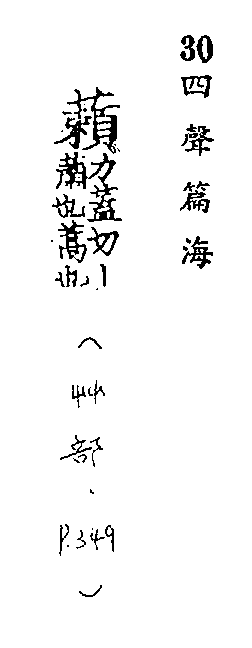 30四聲篇海
藾力蓋切丨
蕭也蒿也
(艸部、P.349)